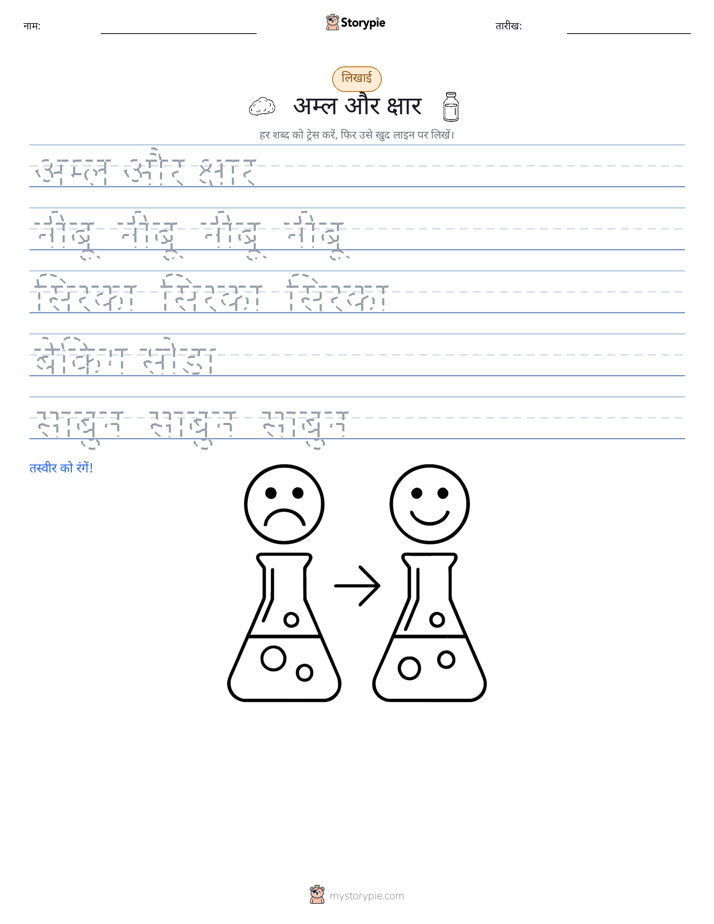 नाम: Storypie तारीख:
लिखाई
अम्ल और क्षार
हर शब्द को ट्रेस करें, फिर उसे खुद लाइन पर लिखें।
अम्ल और क्षार
नींबू नींबू नींबू नींबू
सिरका सिरका सिरका
बेकिंग सोडा
साबुन साबुन साबुन
तस्वीर को रंगें!
mystorypie.com